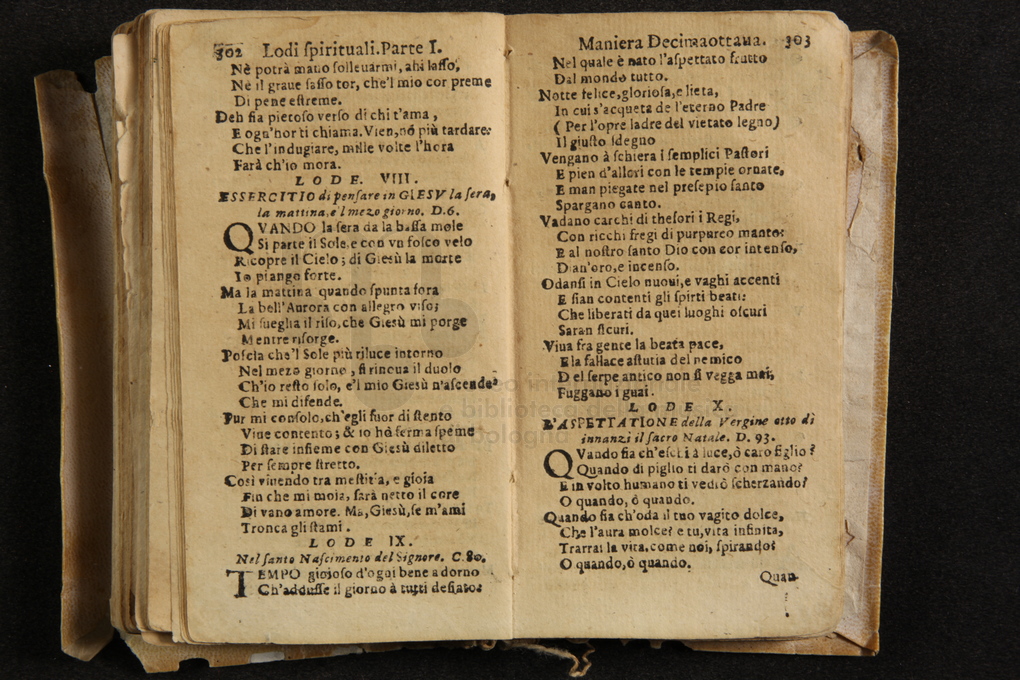 302 Lodi ſpirituali. Parte I.
Nè potrà mano ſolleuarmi, ahi laſſo,
Nè il graue ſaſſo tor, che'l mio cor preme
Di pene eſtreme.
Deh ſia pietoſo verſo di chi t'ama,
E ogn'hor ti chiama. Vien, nõ più tardare:
Che l'indugiare, mille volte l'hora
Farà ch'io mora.
LODE. VIII.
ESSERCITIO di penſare in GIESV la ſera,
la mattina, e'l mezo giorno. D.6.
QVANDO la ſera da la baſſa mole
Si parte il Sole, e con vn foſco velo
Ricopre il Cielo; di Giesù la morte
Io piango forte.
Ma la mattina quando ſpunta fora
La bell'Aurora con allegro viſo;
Mi ſueglia il riſo, che Giesù mi porge
Mentre riſorge.
Poſcia che'l Sole più riluce intorno
Nel mezo giorno, ſi rinoua il duolo
Ch'io reſto ſolo, e'l mio Giesù n'aſcende
Che mi difende.
Pur mi conſolo, ch'egli fuor di ſtento
Viue contento; & io hò ferma ſpeme
Di ſtare inſieme con Giesù diletto
Per ſempre ſtretto.
Così viuendo tra meſtitia, e gioia
Fin che mi moia, ſarà netto il core
Di vano amore. Ma, Giesù, ſe m'ami
Tronca gli ſtami.
LODE IX.
Nel ſanto Naſcimento del Signore. C.80.
TEMPO gioioſo d'ogni bene adorno
Ch'adduſſe il giorno à tutti deſiato:
Maniera Decimaottaua. 303
Nel quale è nato l'aſpettato frutto
Dal mondo tutto.
Notte felice, glorioſa, e lieta,
In cui s'acqueta de l'eterno Padre
(Per l'opre ladre del vietato legno)
Il giuſto ſdegno
Vengano à ſchiera i ſemplici Paſtori
E pien d'allori con le tempie ornate,
E man piegate nel preſepio ſanto
Spargano canto.
Vadano carchi di theſori i Regi,
Con ricchi fregi di purpureo manto:
E al noſtro ſanto Dio con cor intenſo,
Dian'oro, e incenſo.
Odanſi in Cielo nuoui, e vaghi accenti
E ſian contenti gli ſpirti beati:
Che liberati da quei luoghi oſcuri
Saran ſicuri.
Viua fra gente la beata pace,
E la fallace aſtutia del nemico
Del ſerpe antico non ſi vegga mai,
Fuggano i guai.
LODE X.
L'ASPETTATIONE della Vergine otto dì
innanzi il ſacro Natale. D. 93.
QVando fia ch'eſchi à luce, ò caro figlio?
Quando di piglio ti darò con mano?
E in volto humano ti vedrò ſcherzando?
O quando, ò quando.
Quando fia ch'oda il tuo vagito dolce,
Che l'aura molce? e tu, vita infinita,
Trarrai la vita, come noi, ſpirando?
O quando, ò quando.
Quan-